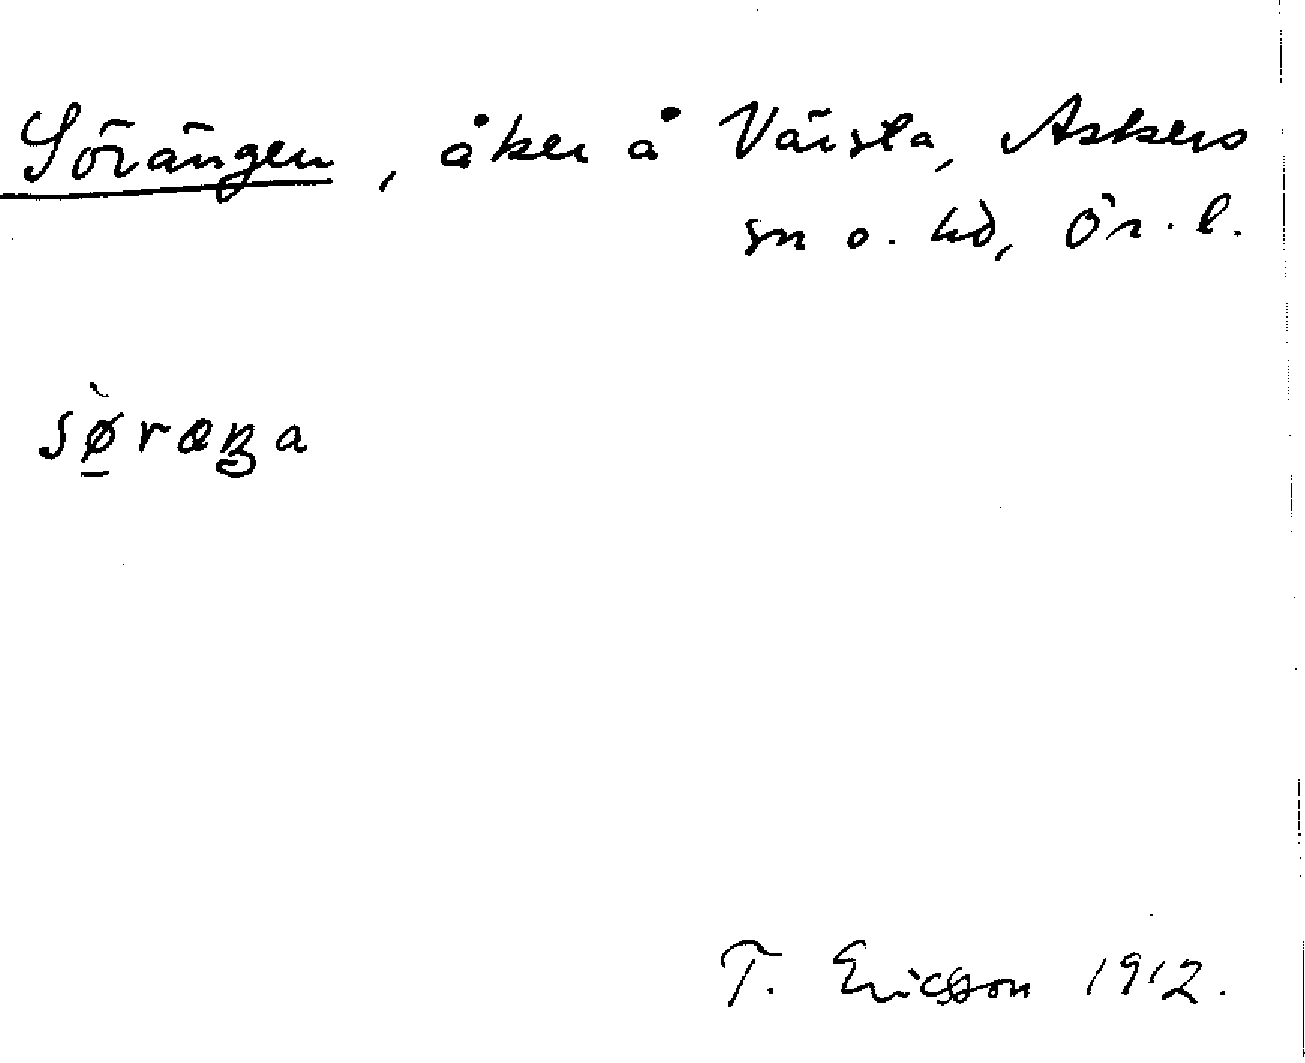 Sörängen, åker å Värsta, Askers
sn o. hd, Ör. l.
sø̱̀ræŋa
T. Ericsson 1912.